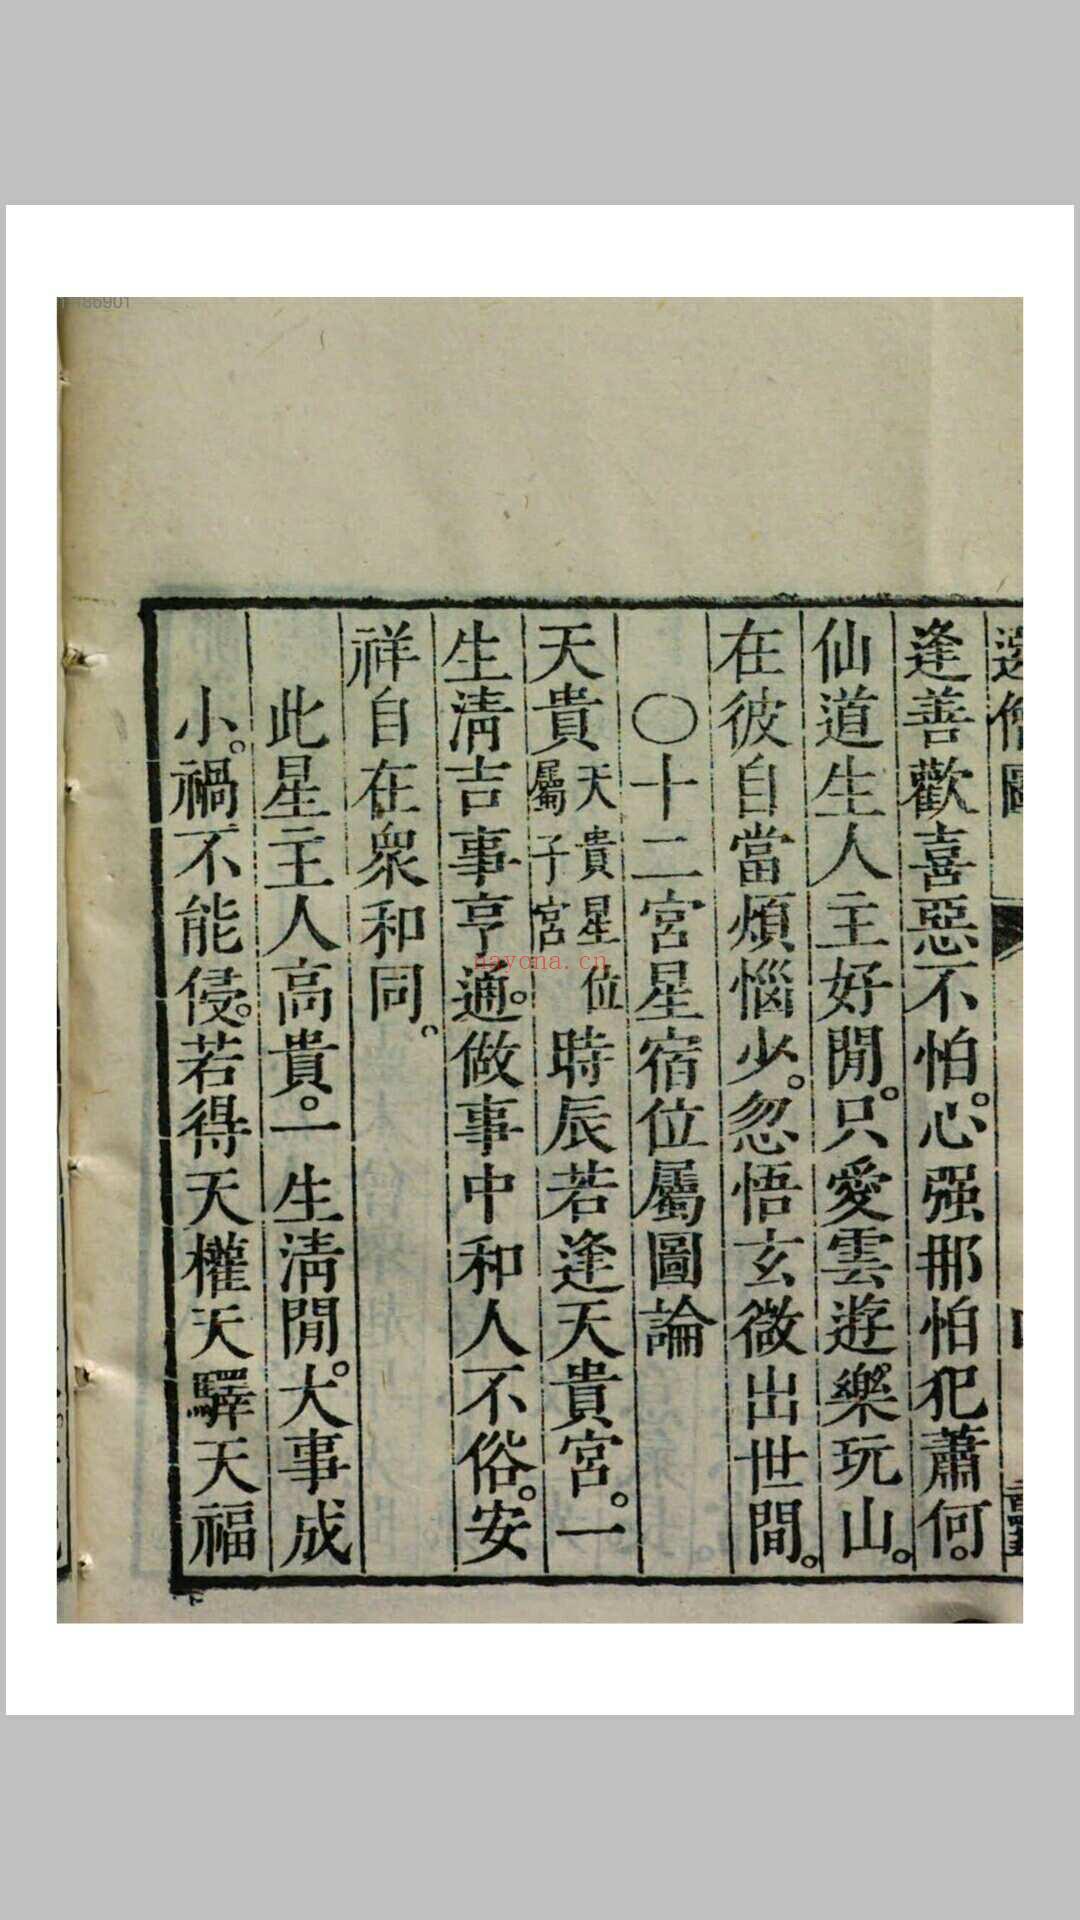 選僧圖
逢善歡喜惡不怕。心强那怕犯蕭何。
仙道生人主好閒。只愛雲遊樂玩山。
在彼自當煩惱少。忽悟玄微出世間。
〇十二宮星宿位屬圖論
天貴天貴星位屬子宮時辰若逢天貴宮。一
生淸吉事亨通。做事中和人不俗。安
祥自在衆和同。
此星主人高貴。一生淸閒。大事成
小。禍不能侵。若得天權天驛天福
nayona.cn